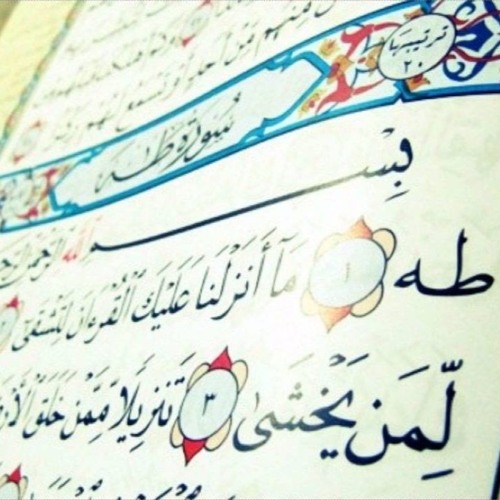 ترتيبها
٢٠
سورة طه
بسم الله الرحمن الرحيم
طه ١ مَآ أَنزَلْنَا عَلَيْكَ ٱلْقُرْءَانَ لِتَشْقَىٰٓ
لِّمَن يَخْشَىٰ ٣ تَنزِيلًا مِّمَّنْ خَلَقَ ٱلْأَرْ